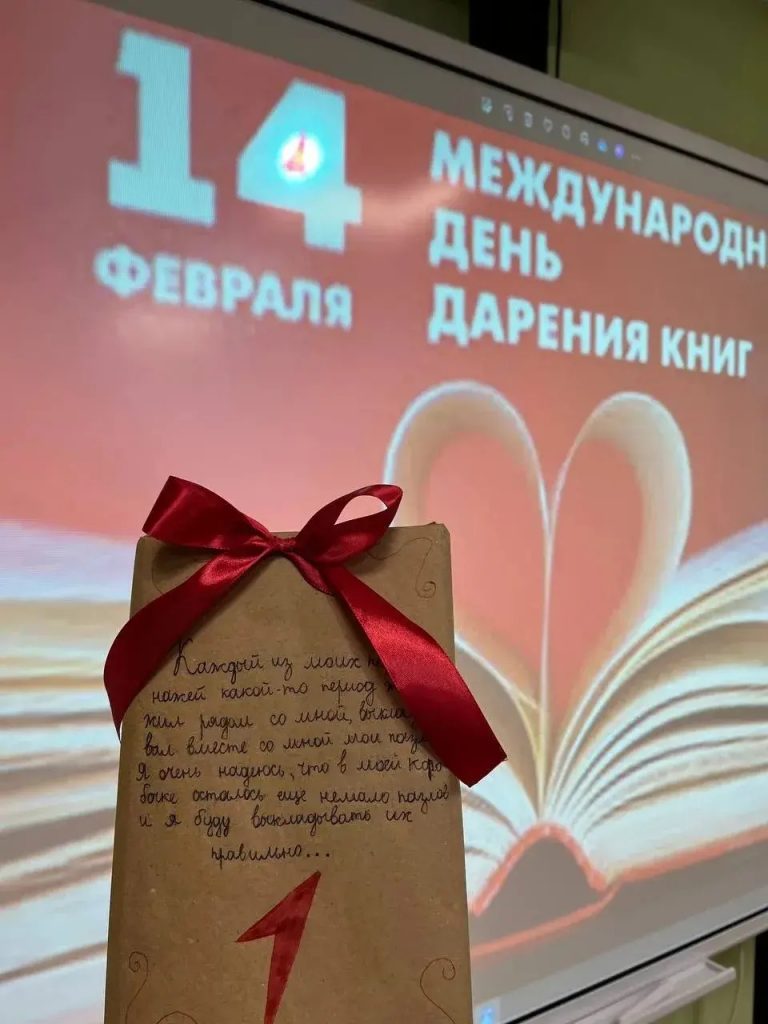 14
ФЕВРАЛЯ
МЕЖДУНАРОДН
ДЕНЬ
ДАРЕНИЯ КНИГ
Каждый из моих
нажей какой-то период
жил рядом со мной, выкла
вал вместе со мной мои пазл
Я очень надеюсь, что в моей коро
бочке осталось ещё немало пазлов
и я буду выкладывать их
правильно...
1